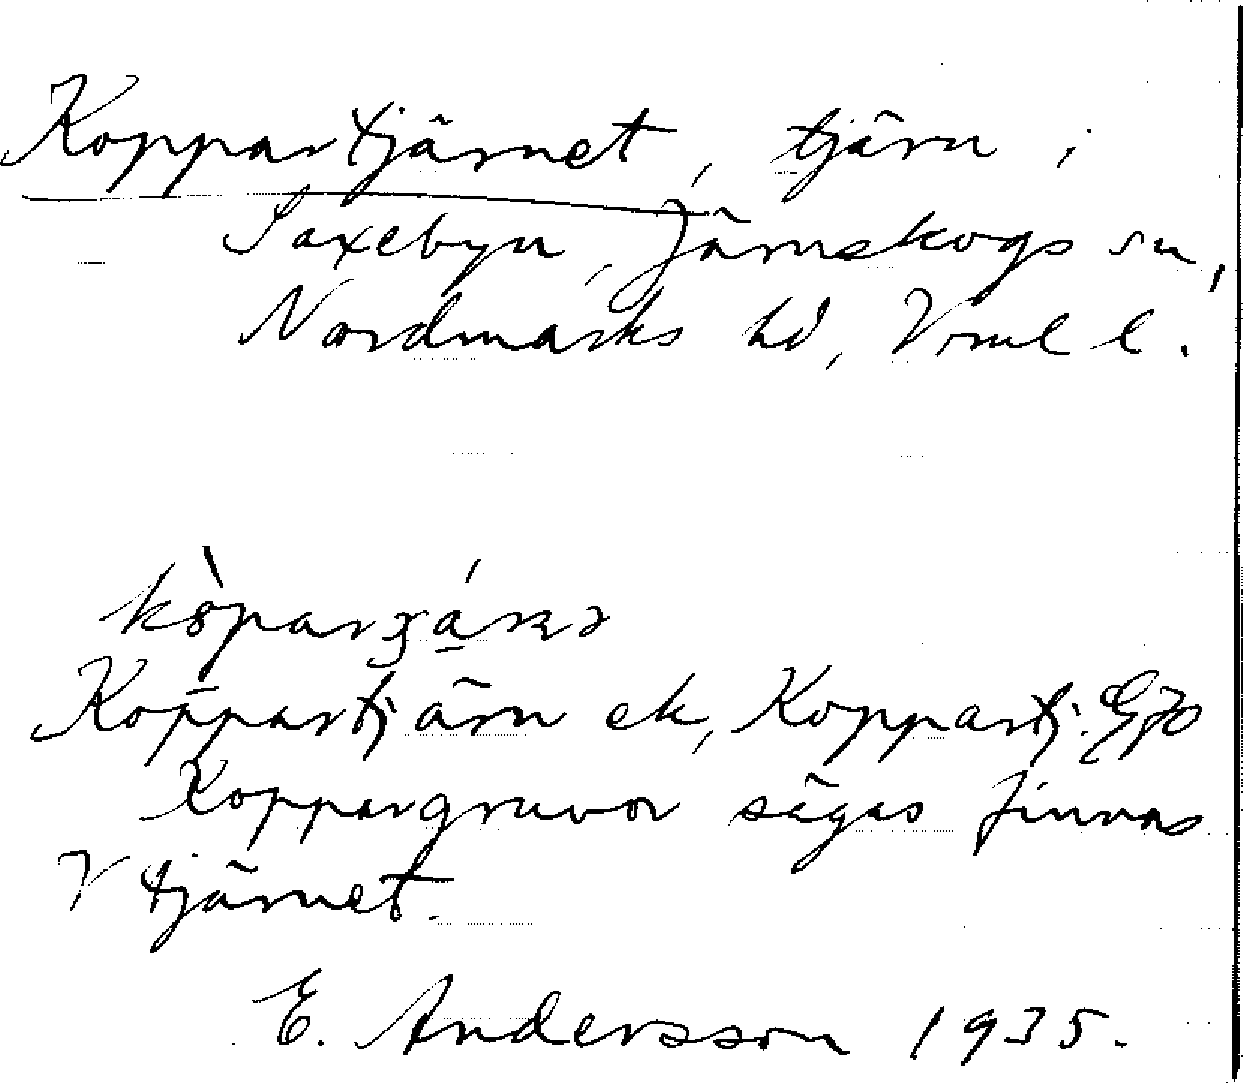 Koppartjärnet, tjärn i
Saxebyn, Järnskogs sn,
Nordmarks hd, Vrml l.
Koppartjärn ek, Koppartj. GJo
Koppargruvor sägas finnas
V tjärnet.
E. Andersson 1935.